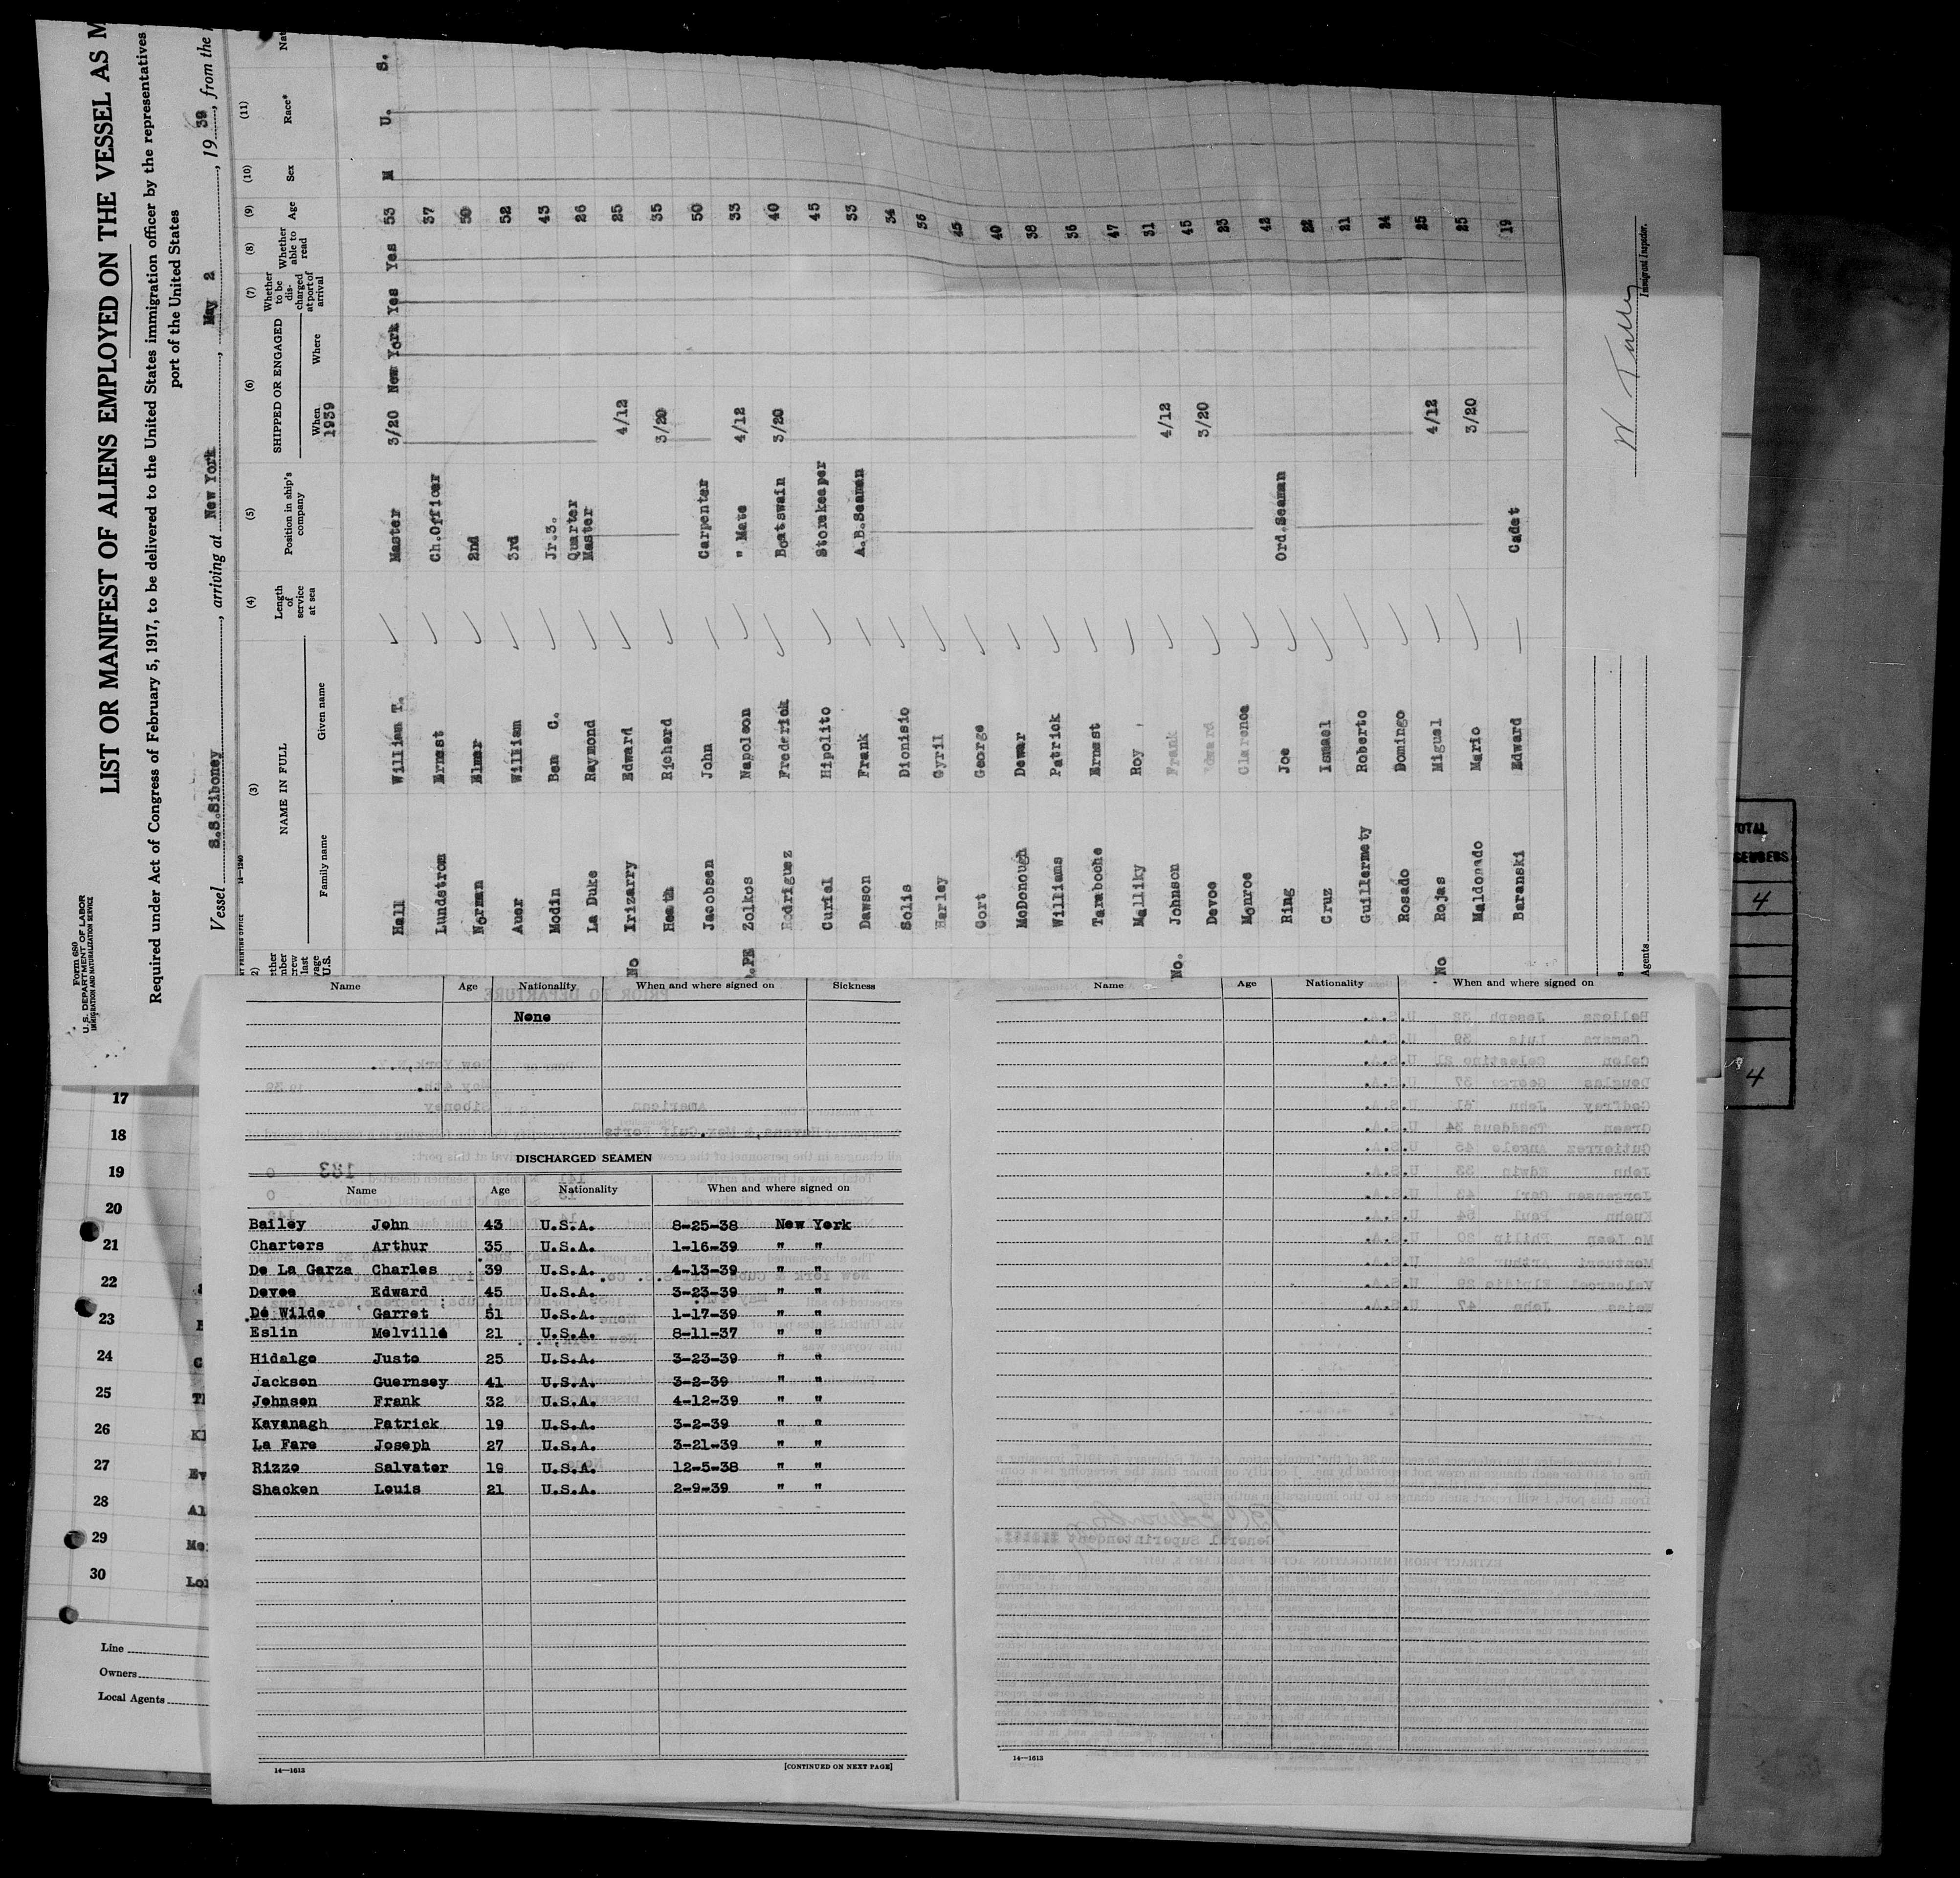 Form 680
U.S. DEPARTMENT OF LABOR
IMMIGRATION AND NATURALIZATION SERVICE
LIST OR MANIFEST OF ALIENS EMPLOYED ON THE VESSEL AS M
Required under Act of Congress of February 5, 1917, to be delivered to the United States immigration officer by the representatives
port of the United States
Vessel S.S.Siboney, arriving at New York, May 2, 1939, from the
14—1240
(3) (4) (5) (6) (7) (8) (9) (10) (11)
NAME IN FULL
Family name Given name
Length of service at sea
Position in ship's company
SHIPPED OR ENGAGED
When Where
1939
Whether to be discharged at port of arrival
Whether able to read
Age
Sex
Race*
Hall William T. Master 3/20 New York Yes Yes 53 M U. S.
Lundstrom Ernest Ch.Officer 37
Norman Elmer 2nd 50
Auer William 3rd 52
Modin Ben C. Jr.3. 43
La Duke Raymond Quarter Master 26
No Irizarry Edward 4/12 25
Heath Richard 3/20 35
Jacobsen John Carpenter 50
Zolkos Napoleon " Mate 4/12 33
Rodriguez Frederick Boatswain 3/20 40
Curiel Hipolito Storekeeper 45
Dawson Frank A.B.Seaman 33
Solis Dionisio 34
Harley Cyril 36
Gort George 45
McDonough Dewar 40
Williams Patrick 38
Taraboche Ernest 36
Malliky Roy 47
No. Johnson Frank 4/12 31
Devoe Edward 3/20 45
Monroe Clarence 23
Ring Joe Ord.Seaman 42
Cruz Ismael 22
Guillermety Roberto 21
Rosado Domingo 24
No Rojas Miguel 4/12 25
Maldonado Mario 3/20 25
Baranski Edward Cadet 19
Immigrant Inspector.
Agents
Name Age Nationality When and where signed on Sickness
None
DISCHARGED SEAMEN
Name Age Nationality When and where signed on
Bailey John 43 U.S.A. 8-25-38 New York
Charters Arthur 35 U.S.A. 1-16-39 " "
De La Garza Charles 39 U.S.A. 4-13-39 " "
Devoe Edward 45 U.S.A. 3-23-39 " "
De Wilde Garret 51 U.S.A. 1-17-39 " "
Eslin Melville 21 U.S.A. 8-11-37 " "
Hidalgo Justo 25 U.S.A. 3-23-39 " "
Jackson Guernsey 41 U.S.A. 3-2-39 " "
Johnson Frank 32 U.S.A. 4-12-39 " "
Kavanagh Patrick 19 U.S.A. 3-2-39 " "
La Fare Joseph 27 U.S.A. 3-21-39 " "
Rizzo Salvator 19 U.S.A. 12-5-38 " "
Shacken Louis 21 U.S.A. 2-9-39 " "
14—1613
[CONTINUED ON NEXT PAGE]
Name Age Nationality When and where signed on
14—1613
17
18
19
20
21
22
23
24
25
26
27
28
29
30
Line
Owners
Local Agents
4
4